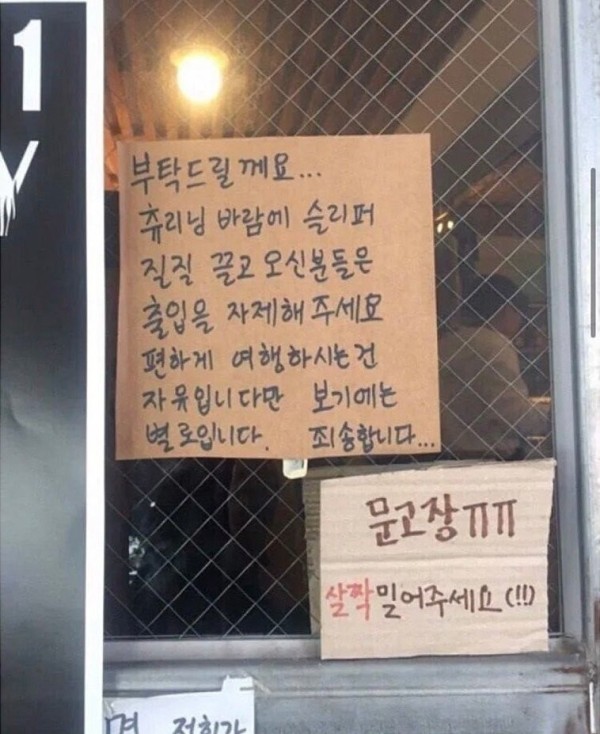 1
Y
부탁드릴께요...
츄리닝 바람에 슬리퍼
질질 끌고 오신분들은
출입을 자제해 주세요
편하게 여행하시는건
자유입니다만 보기에는
별로입니다. 죄송합니다...
문고장ㅠㅠ
살짝 밀어주세요(!!)
면 저희가